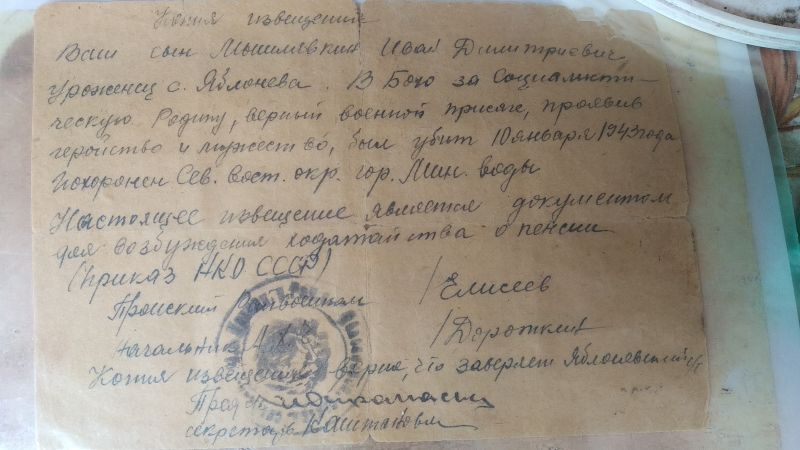 Копия извещения
Ваш сын Мошлявкин Иван Дмитриевич,
уроженец с. Яблонева. В Бою за Социалисти-
ческую Родину, верный военной присяге, проявив
геройство и мужество, был убит 10 января 1943 года
Похоронен Сев. Вост. окр. гор. Мин. воды
Настоящее извещение является документом
для возбуждения ходатайства о пенсии
(приказ НКО СССР)
Троский /Елисеев
Начальник /Дороткин
Копия извещения верно, что заверяет
Пред
секретарь